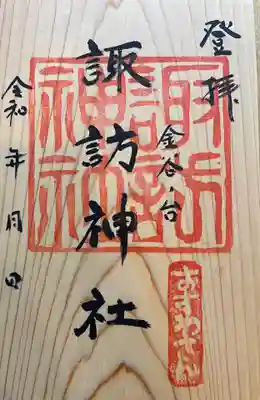 登拝
金谷ノ台
諏訪神社
令和 年 月 日
諏訪神社